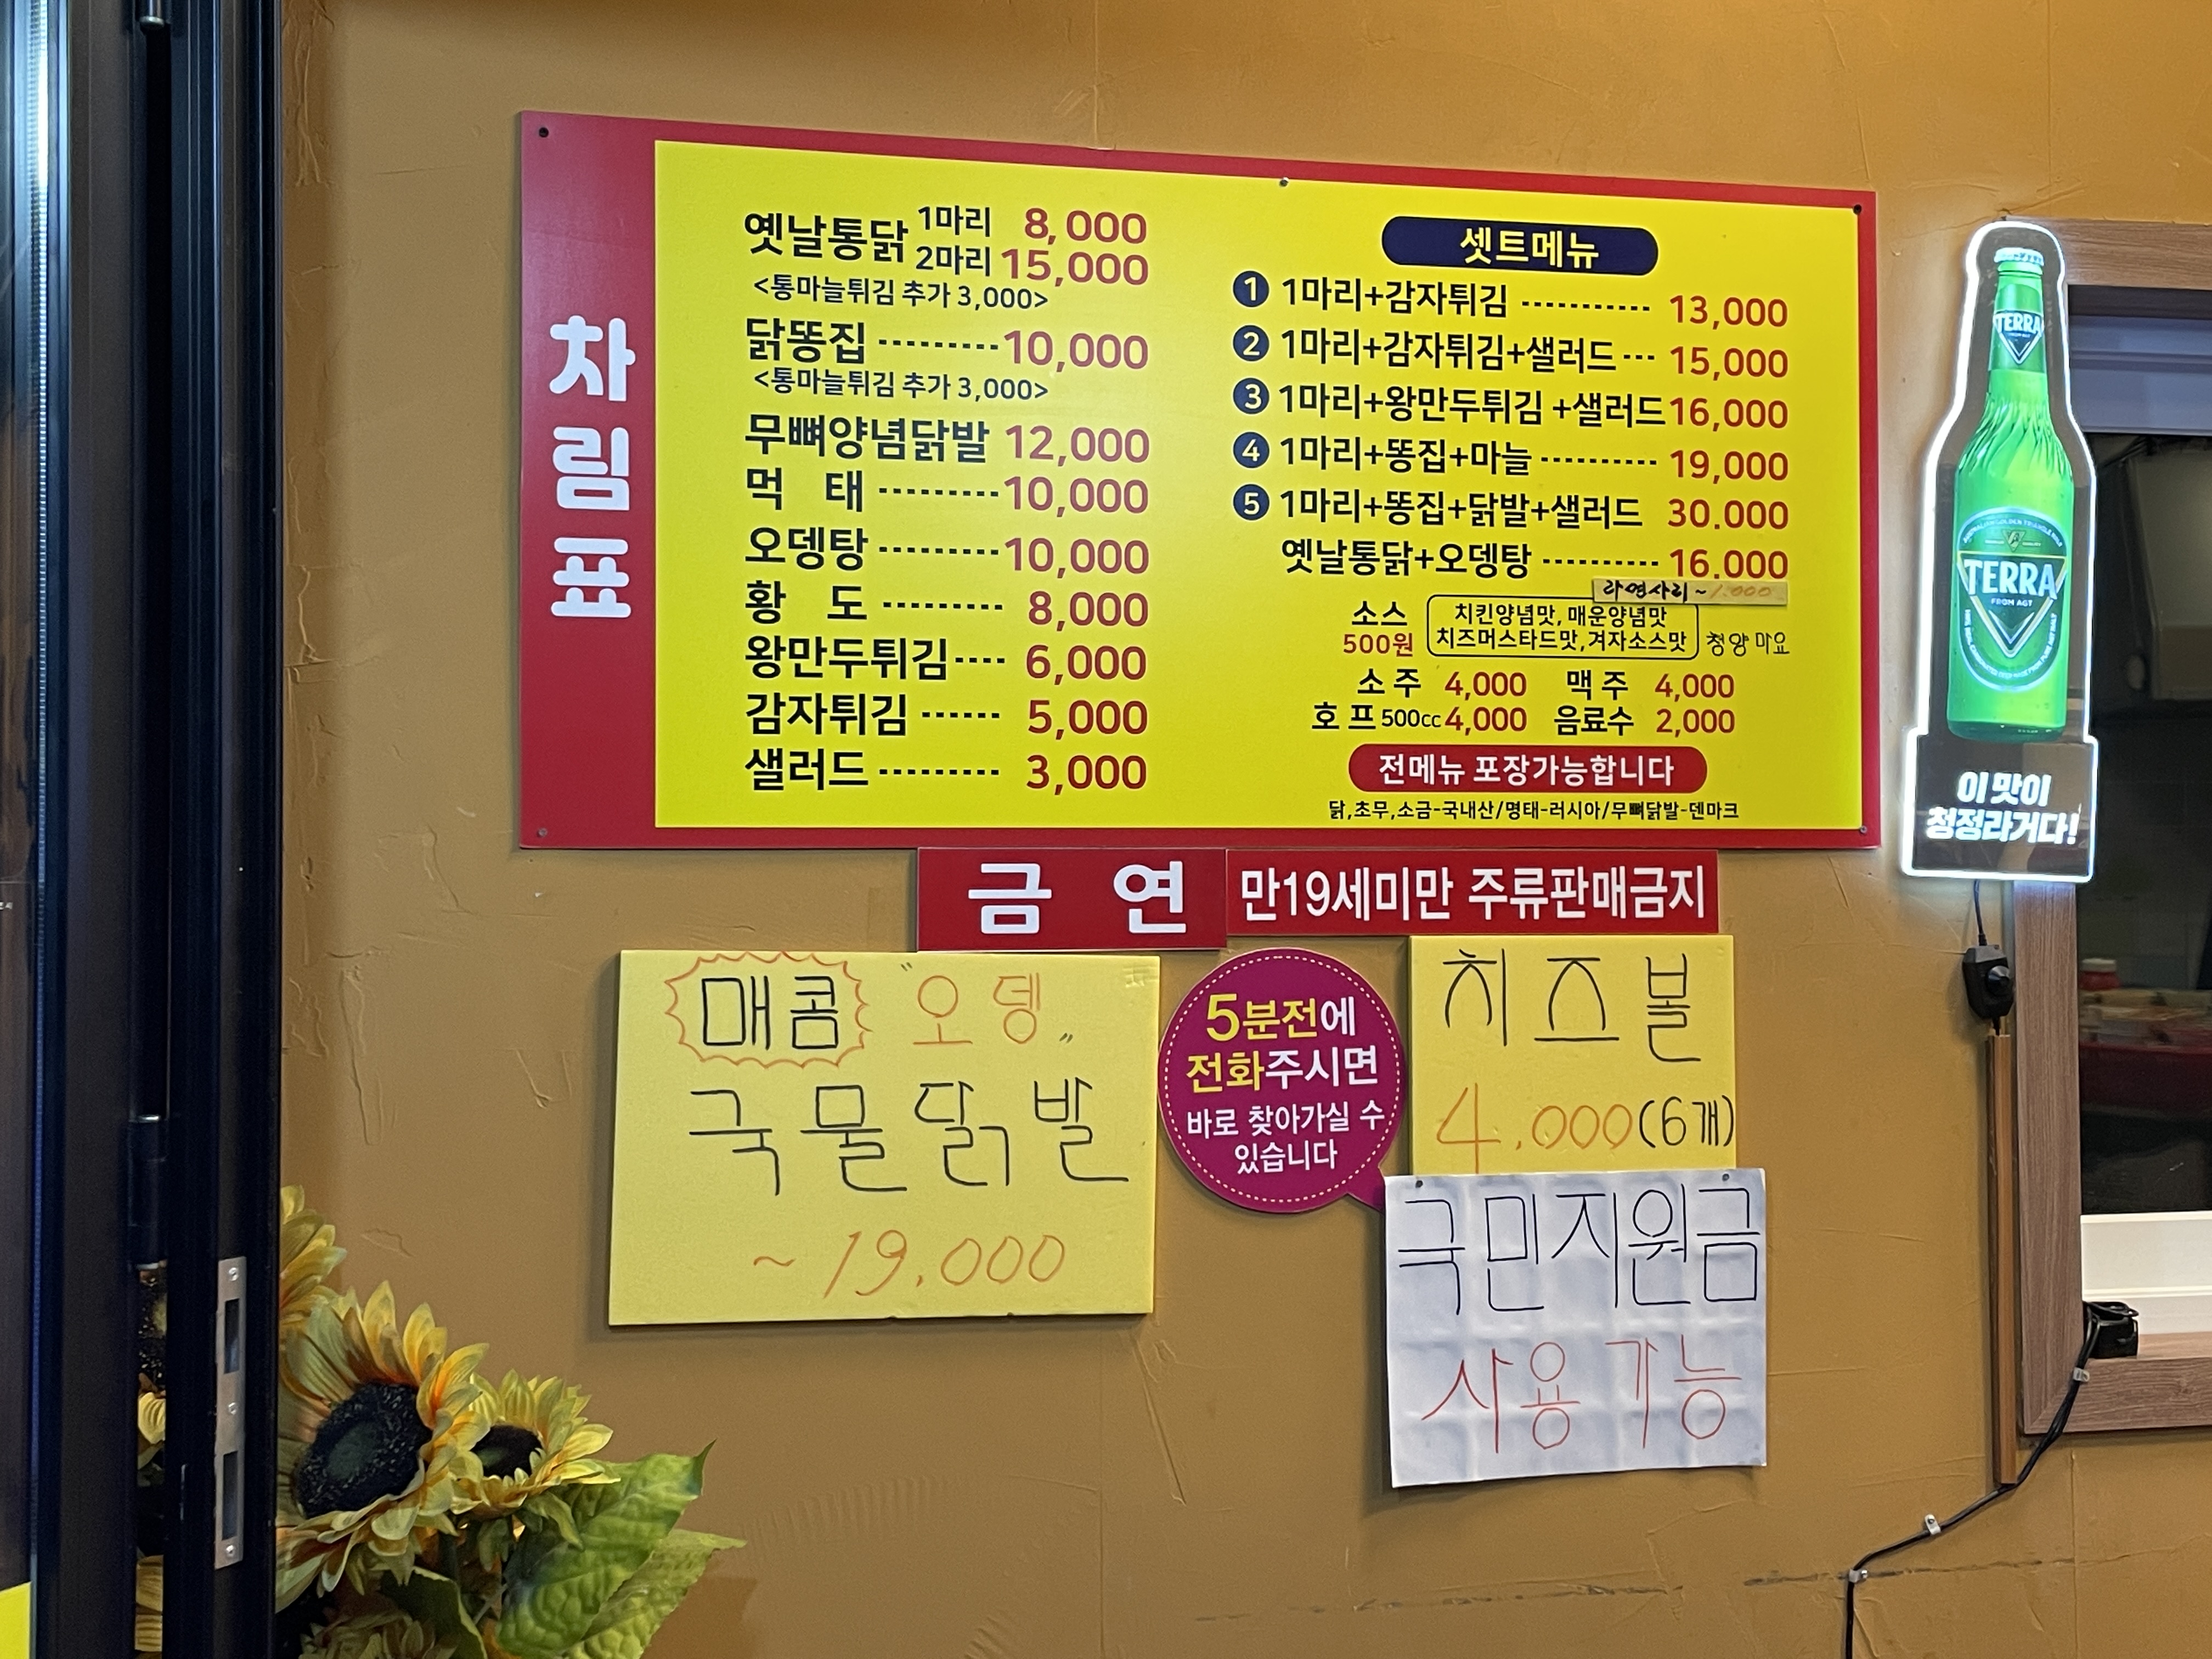 차림표
옛날통닭 1마리 8,000
2마리 15,000
<통마늘튀김 추가 3,000>
닭똥집 ---------10,000
<통마늘튀김 추가 3,000>
무뼈양념닭발 12,000
먹 태 ---------10,000
오뎅탕 ---------10,000
황 도 --------- 8,000
왕만두튀김---- 6,000
감자튀김 ------ 5,000
샐러드 --------- 3,000
셋트메뉴
1 1마리+감자튀김 ---------- 13,000
2 1마리+감자튀김+샐러드--- 15,000
3 1마리+왕만두튀김 +샐러드16,000
4 1마리+똥집+마늘 --------- 19,000
5 1마리+똥집+닭발+샐러드 30.000
옛날통닭+오뎅탕 --------- 16.000
라면사리~1.000
소스
500원
치킨양념맛, 매운양념맛
치즈머스타드맛,겨자소스맛
청양마요
소 주 4,000 맥 주 4,000
호 프 500cc 4,000 음료수 2,000
전메뉴 포장가능합니다
닭,초무,소금-국내산/명태-러시아/무뼈닭발-덴마크
TERRA
TERRA
FROM AGT
이 맛이
청정라거다!
금 연
만19세미만 주류판매금지
매콤 "오뎅"
국물닭발
~19.000
5분전에
전화주시면
바로 찾아가실 수
있습니다
치즈볼
4.000(6개)
국민지원금
사용가능